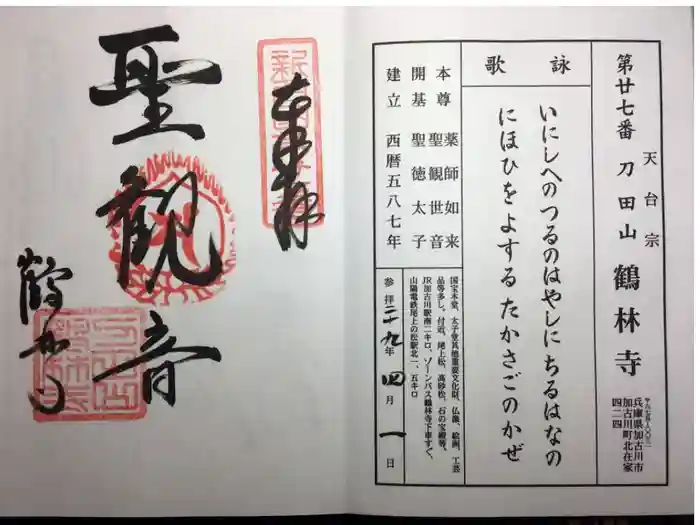 天台宗
第廿七番 刀田山 鶴林寺
兵庫県加古川市
加古川町北在家
四二四
詠歌
いにしへのつるのはやしにちるはなの
にほひをよするたかさごのかぜ
本尊 薬師如来
聖観世音
開基 聖徳太子
建立 西暦五八七年
国宝本堂、太子堂其他重要文化財、仏像、絵画、工芸
品等多し。付近、尾上松、高砂松、石の宝殿等。
JR加古川駅南二キロ、ゾーンバス鶴林寺下車すぐ、
山陽電鉄尾上の松駅北一、五キロ
参拝 二十九年 四月 一日
奉拝
聖観音
鶴林寺